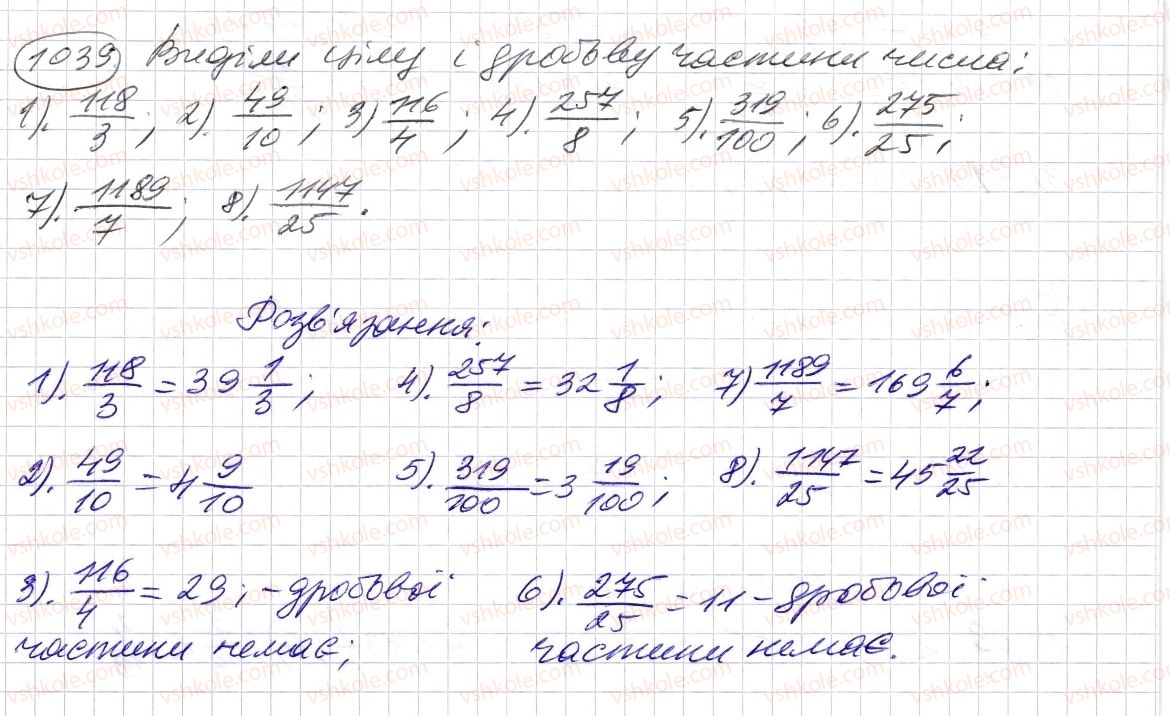 1039 Виділи цілу і дробову частини числа:
1). 118/3; 2). 49/10; 3) 116/4; 4). 257/8; 5). 319/100; 6). 275/25;
7). 1189/7; 8). 1147/25.
Розв'язання:
1). 118/3 = 39 1/3; 4). 257/8 = 32 1/8; 7) 1189/7 = 169 6/7;
2). 49/10 = 4 9/10 5). 319/100 = 3 19/100; 8). 1147/25 = 45 22/25
3). 116/4 = 29; - дробової 6). 275/25 = 11 - дробової
частини немає; частини немає.